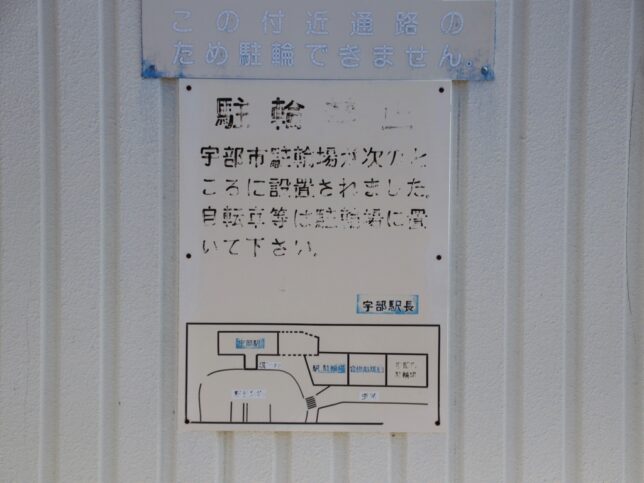 この付近通路の
ため駐輪できません。
駐輪禁止
宇部市駐輪場が次のと
ころに設置されました。
自転車等は駐輪場に置
いて下さい。
宇部駅長
宇部駅